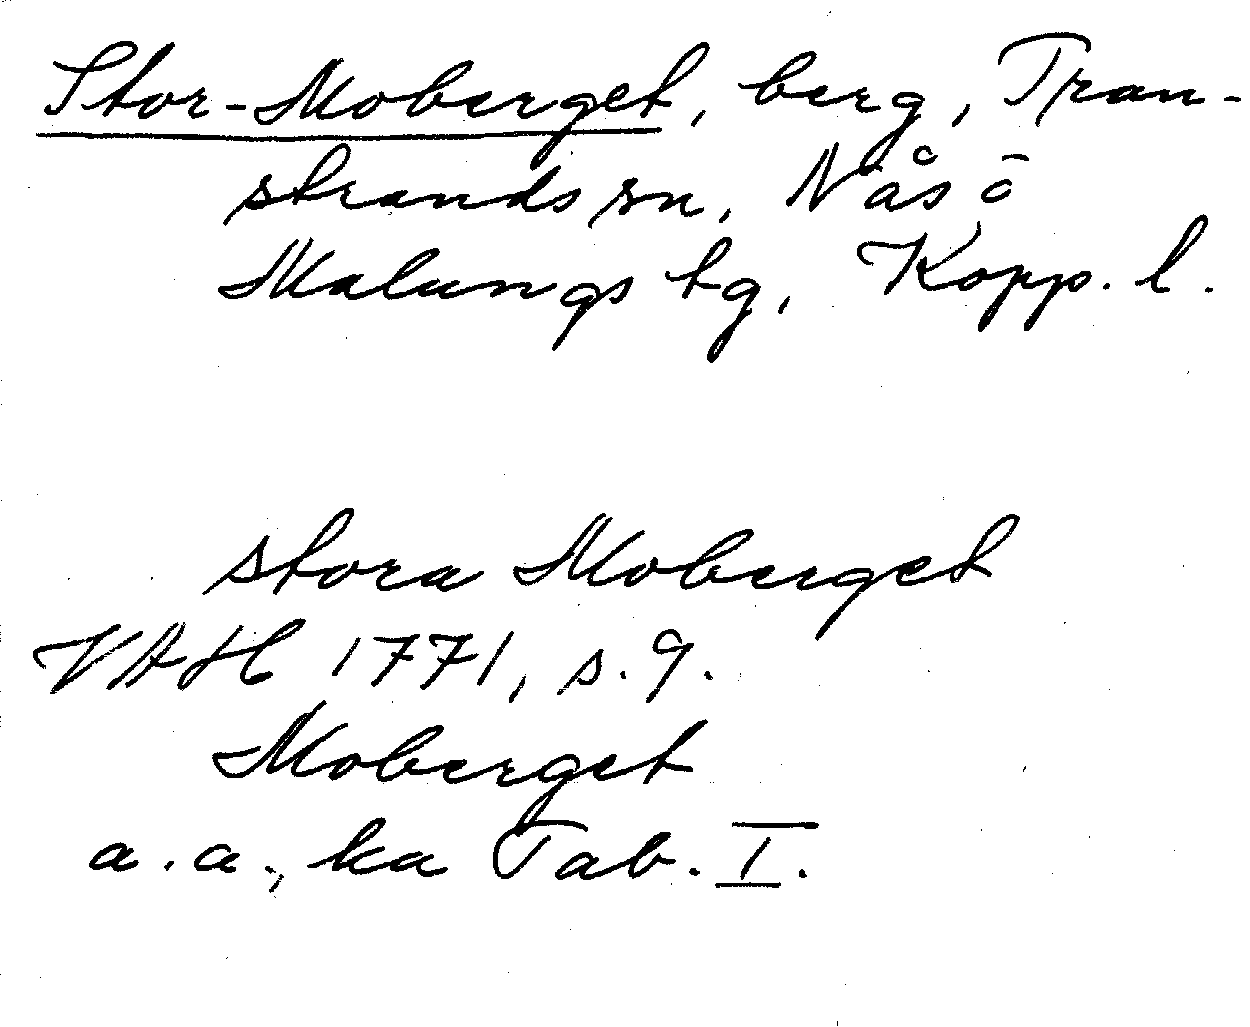 Stor-Moberget, berg, Tran-
strands sn, Nås o
Malungs tg, Kopp. l.
stora Moberget
VAH 1771, s. 9.
Moberget
a.a., ka Tab. I.